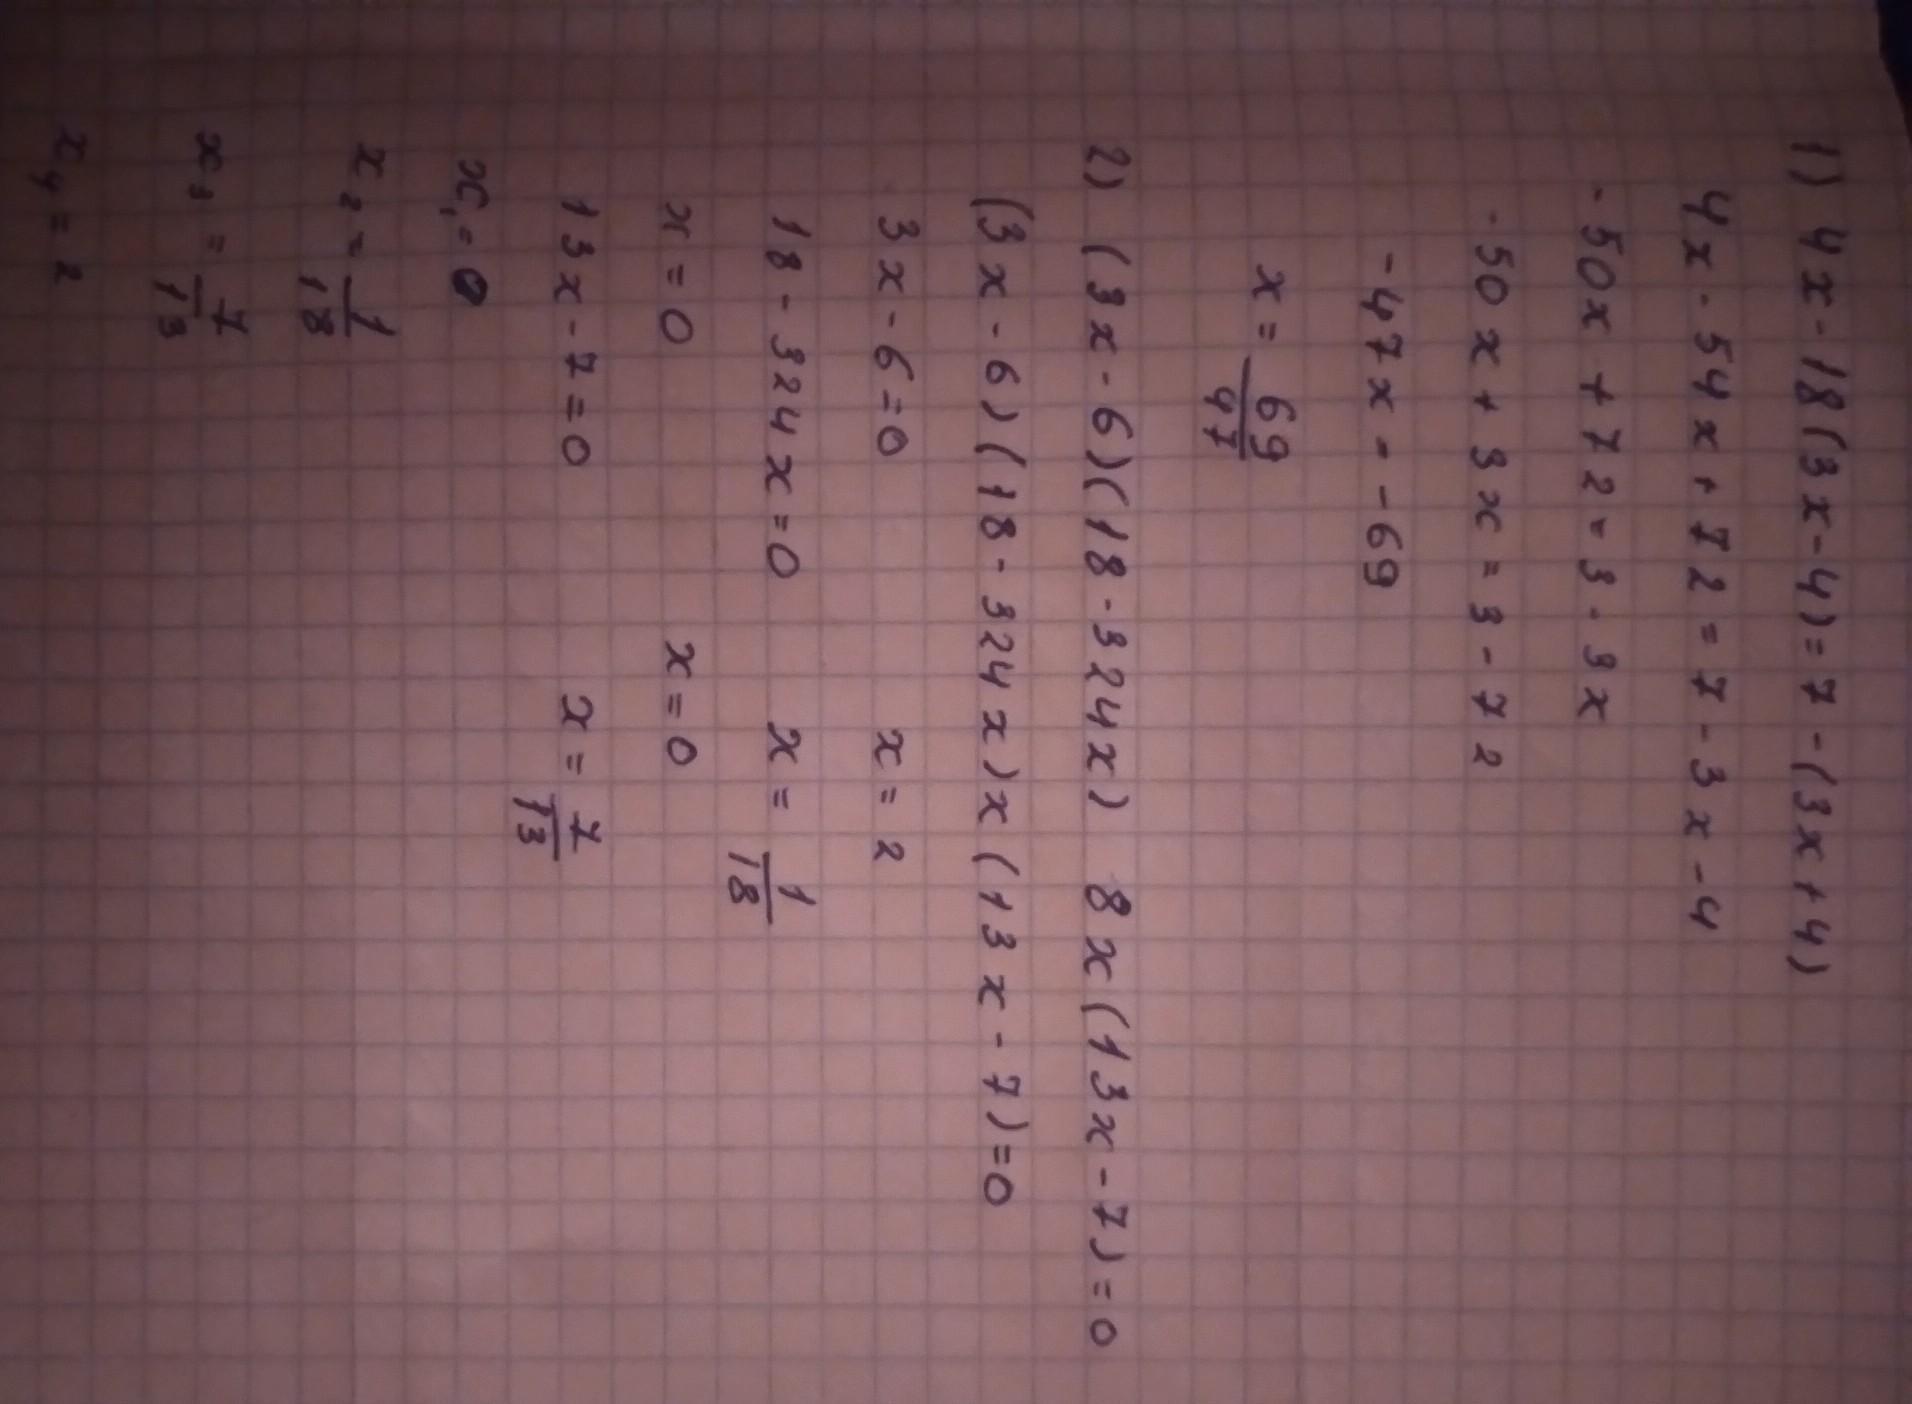 1) 4x-18(3x-4)=7-(3x+4)
4x-54x+72=7-3x-4
-50x+72=3-3x
-50x+3x=3-72
-47x=-69
x=69/47
2) (3x-6)(18-324x) 8x(13x-7)=0
(3x-6)(18-324x)x(13x-7)=0
3x-6=0 x=2
18-324x=0 x=1/18
x=0 x=0
13x-7=0 x=7/13
x₁=0
x₂=1/18
x₃=7/13
x₄=2